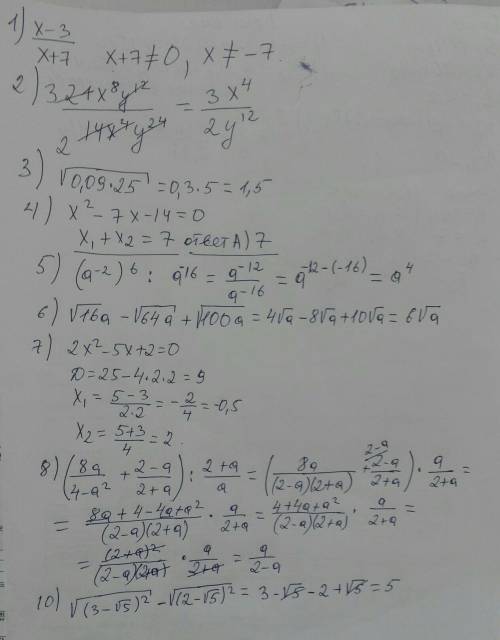 1) x-3/x+7   x+7≠0, x≠-7.
2) 3 21x⁸y¹²/2 14x⁴y²⁴ = 3x⁴/2y¹²
3) √0,09·25 = 0,3·5 = 1,5
4) x² - 7x - 14 = 0
x₁ + x₂ = 7 ответ А) 7
5) (a⁻²)⁶ : a¹⁶ = a⁻¹²/a⁻¹⁶ = a⁻¹²⁻⁽⁻¹⁶⁾ = a⁴
6) √16a - √64a + √100a = 4√a - 8√a + 10√a = 6√a
7) 2x² - 5x + 2 = 0
D = 25 - 4·2·2 = 9
x₁ = 5-3/2·2 = -2/4 = -0,5
x₂ = 5+3/4 = 2.
8) (8a/4-a² + 2-a/2+a) : 2+a/a = (8a/(2-a)(2+a) + 2-a 2-a/2+a) · a/2+a =
= 8a+4-4a+a²/(2-a)(2+a) · a/2+a = 4+4a+a²/(2-a)(2+a) · a/2+a =
= (2+a)²/(2-a)(2+a) · a/2+a = a/2-a
10) √(3-√5)² - √(2-√5)² = 3-√5-2+√5 = 5